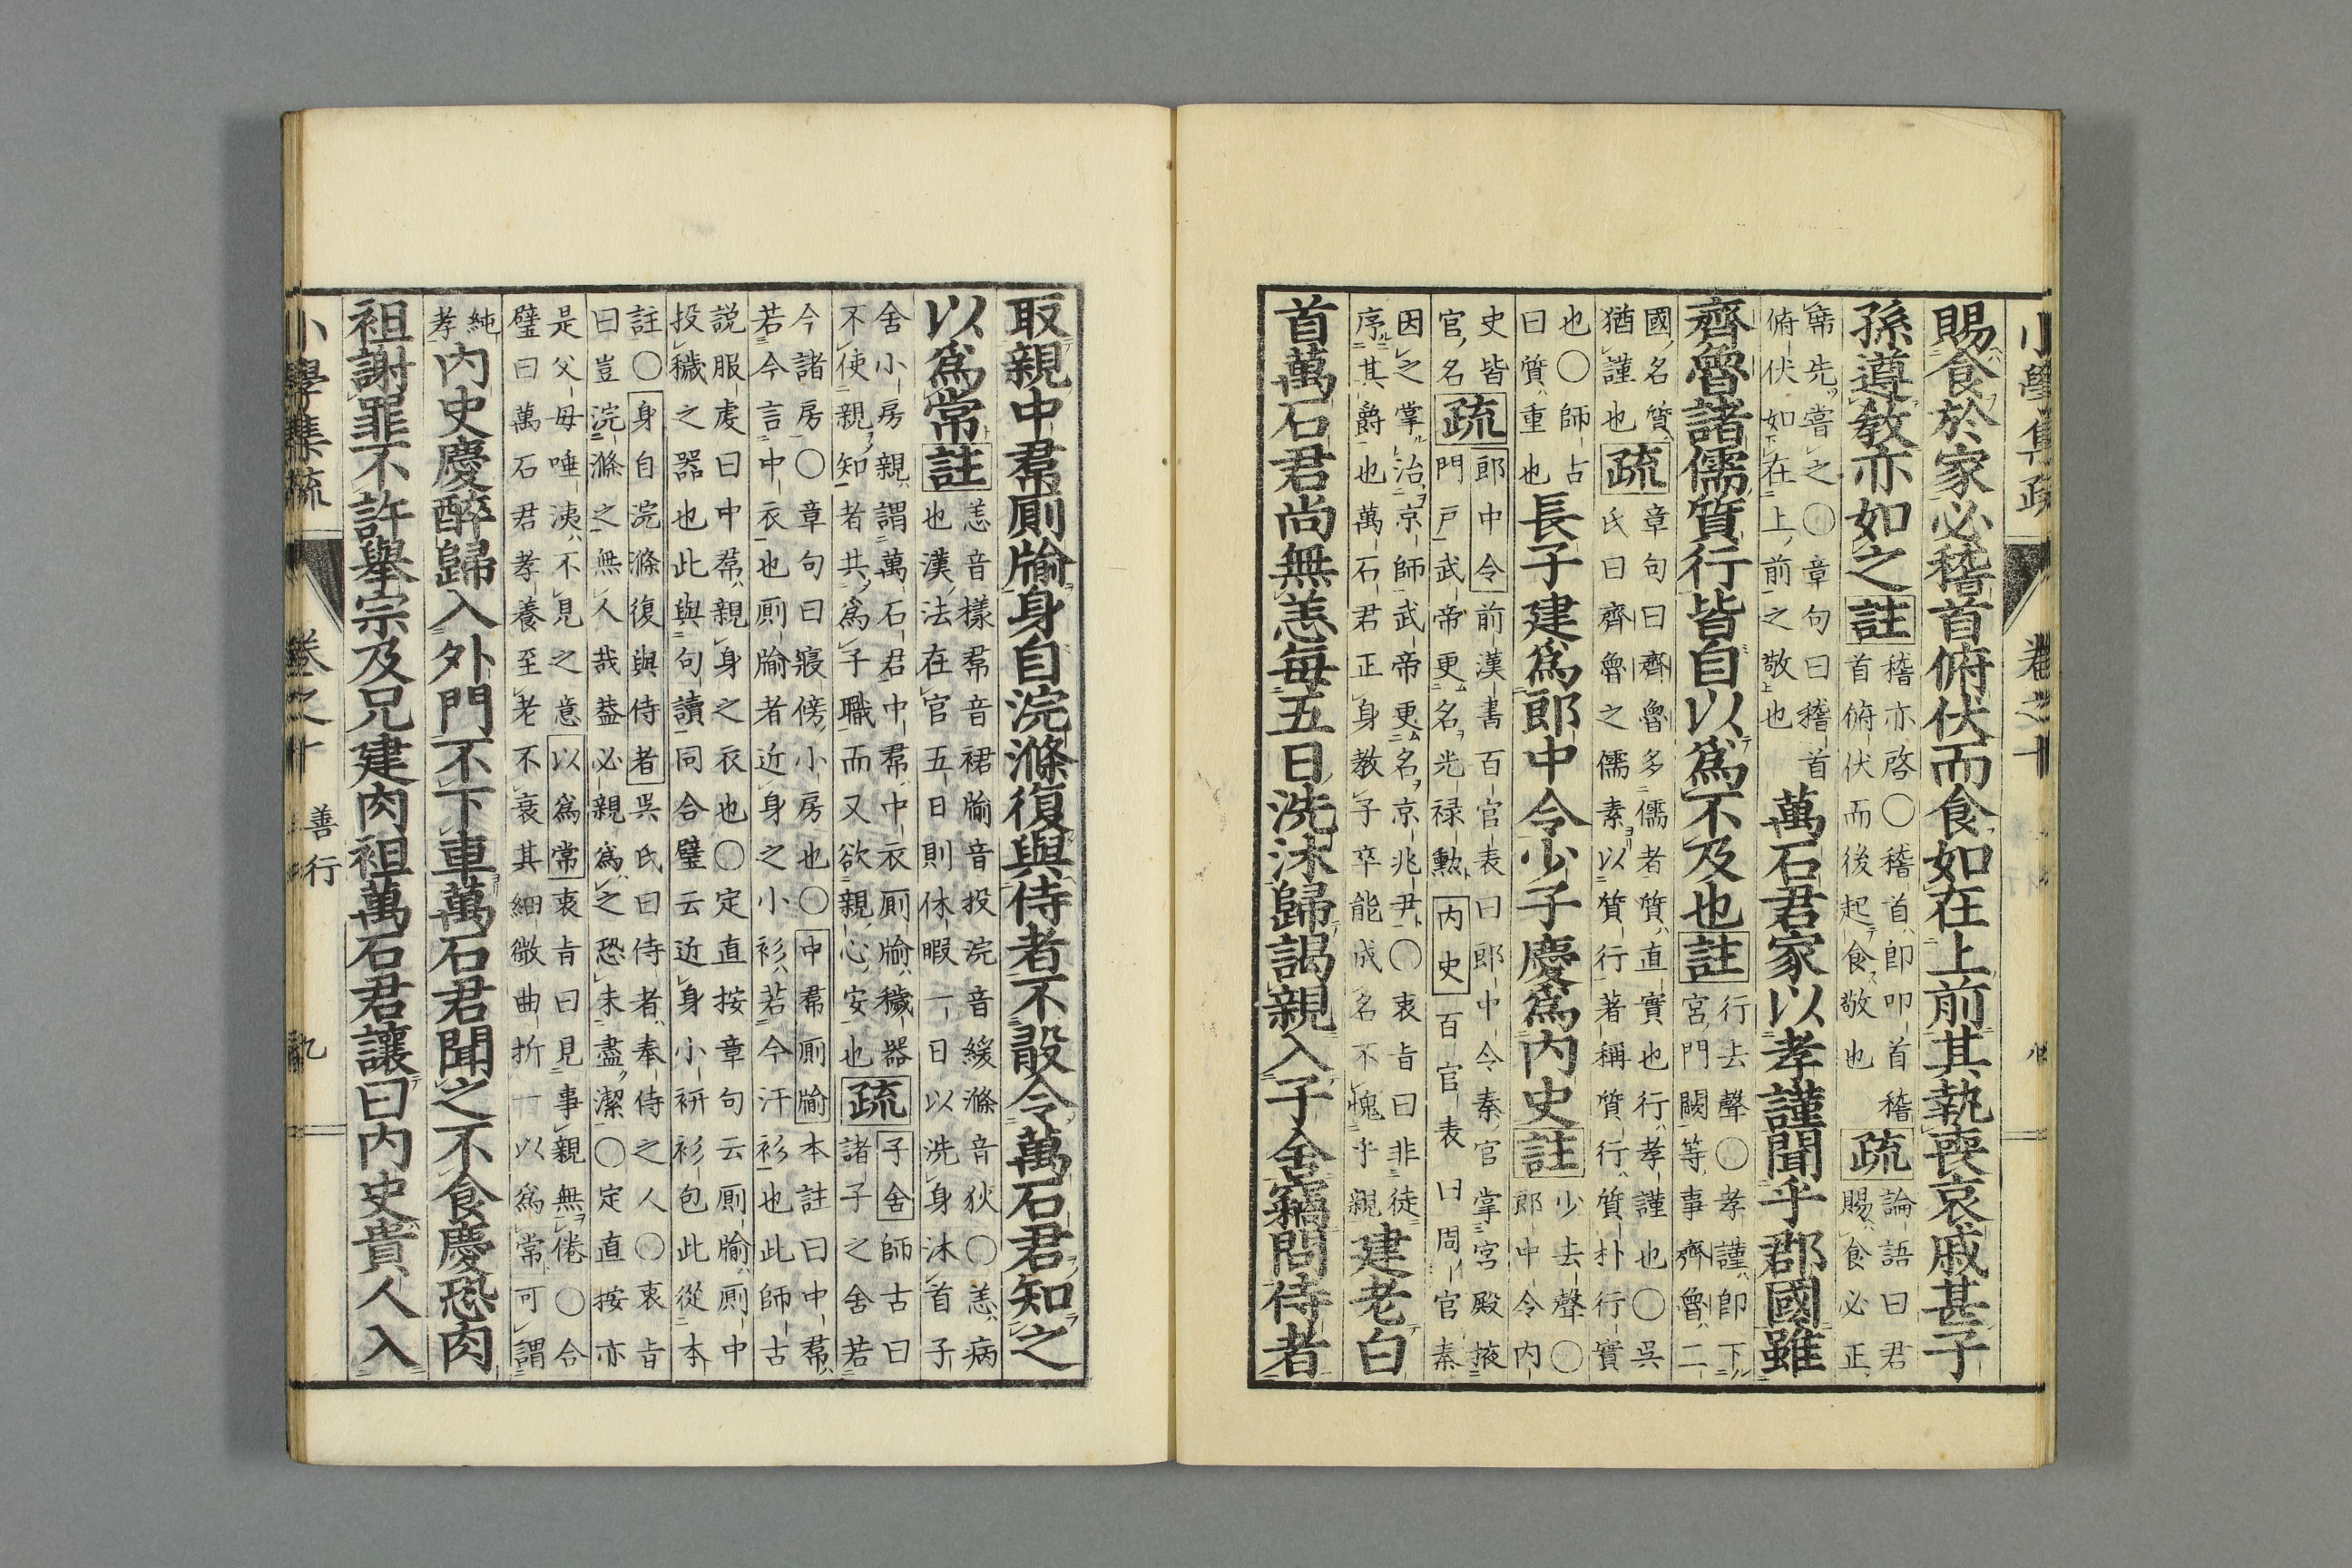 小學集疏　卷之十　八
賜食於家必稽首俯伏而食如在上前其執喪哀戚甚子
孫遵敎亦如之註稽亦啓〇稽首卽叩首稽
首俯伏而後起食敬也疏論語曰君
賜食必正
席先嘗之〇章句曰稽首
俯伏如在上前之敬也萬石君家以孝謹聞乎郡國雖
齊魯諸儒質行皆自以爲不及也註行去聲〇孝謹卽下
宮門闕等事齊魯二
國名質
猶謹也疏章句曰齊魯多儒者質直實也行孝謹也〇吳
氏曰齊魯之儒素以質行著稱質行質朴行實
也〇師古
曰質重也長子建爲郎中令少子慶爲內史註少去聲〇
郎中令內
史皆
官名疏郎中令前漢書百官表曰郎中令秦官掌宮殿掖
門戸武帝更名光禄勲內史百官表曰周官秦
因之掌治京師武帝更名京兆尹〇衷旨曰非徒
序其爵也萬石君正身教子卒能成名不愧乎親建老白
首萬石君尚無恙每五日洗沐歸謁親入子舍竊問侍者
取親中帬厠牏身自浣滌復與侍者不敢令萬石君知之
以爲常註恙音樣帬音裙牏音投浣音緩滌音狄〇恙病
也漢法在官五日則休暇一日以洗身沐首子
舍小房親謂萬石君中帬中衣厠牏穢器
不使親知者共爲子職而又欲親心安也疏子舍師古曰
諸子之舍若
今諸房〇章句曰寢傍小房也〇中帬厠牏本註曰中帬
若今言中衣也厠牏者近身之小衫若今汗衫也此師古
説服虔曰中帬親身之衣也〇定直按章句云厠牏厠中
投穢之器也此與句讀同合璧云近身小衫衫包此從本
註〇身自浣滌復與侍者吳氏曰侍者奉侍之人〇衷旨
曰豈浣滌之無人哉葢必親爲之恐未盡潔〇定直按亦
是父母唾洟不見之意以爲常衷旨曰見事親無倦〇合
璧曰萬石君孝養至老不衰其細微曲折一以爲常可謂
純
孝內史慶醉歸入外門不下車萬石君聞之不食慶恐肉
祖謝罪不許舉宗及兄建肉袒萬石君讓曰内史貴人入
小學集疏　卷之十　善行　九